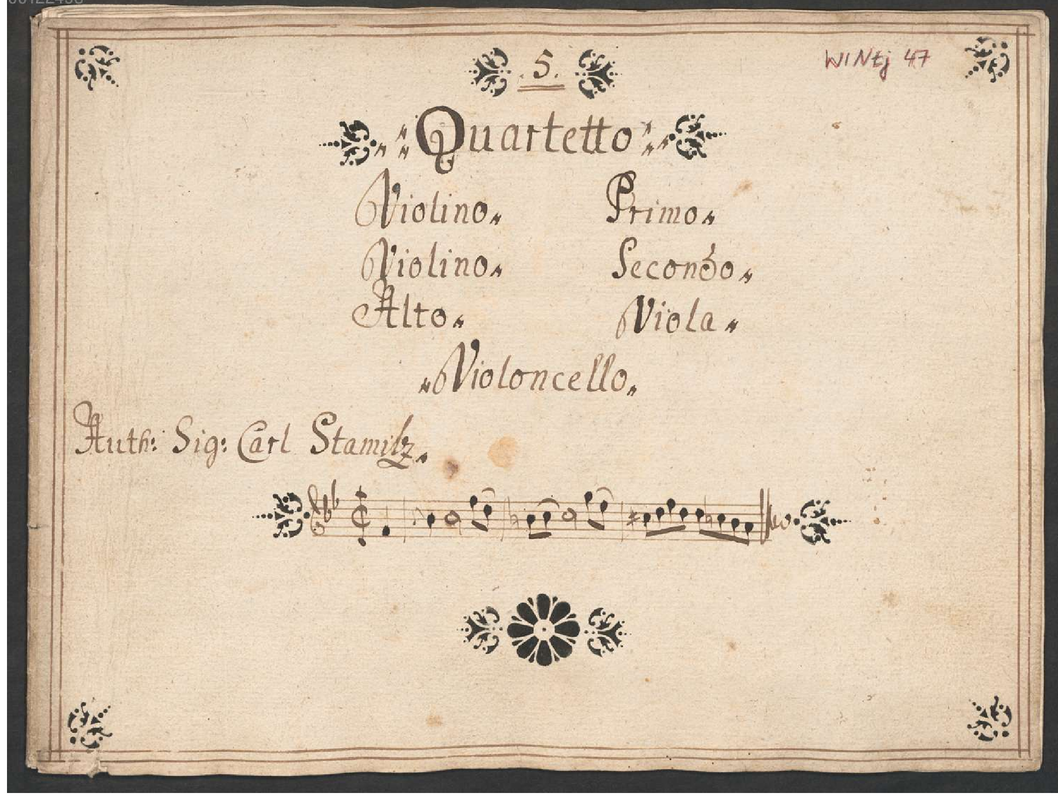 .5.
WINtj 47
Quartetto
Violino Primo
Violino Secondo
Alto Viola
Violoncello
Auth: Sig: Carl Stamitz